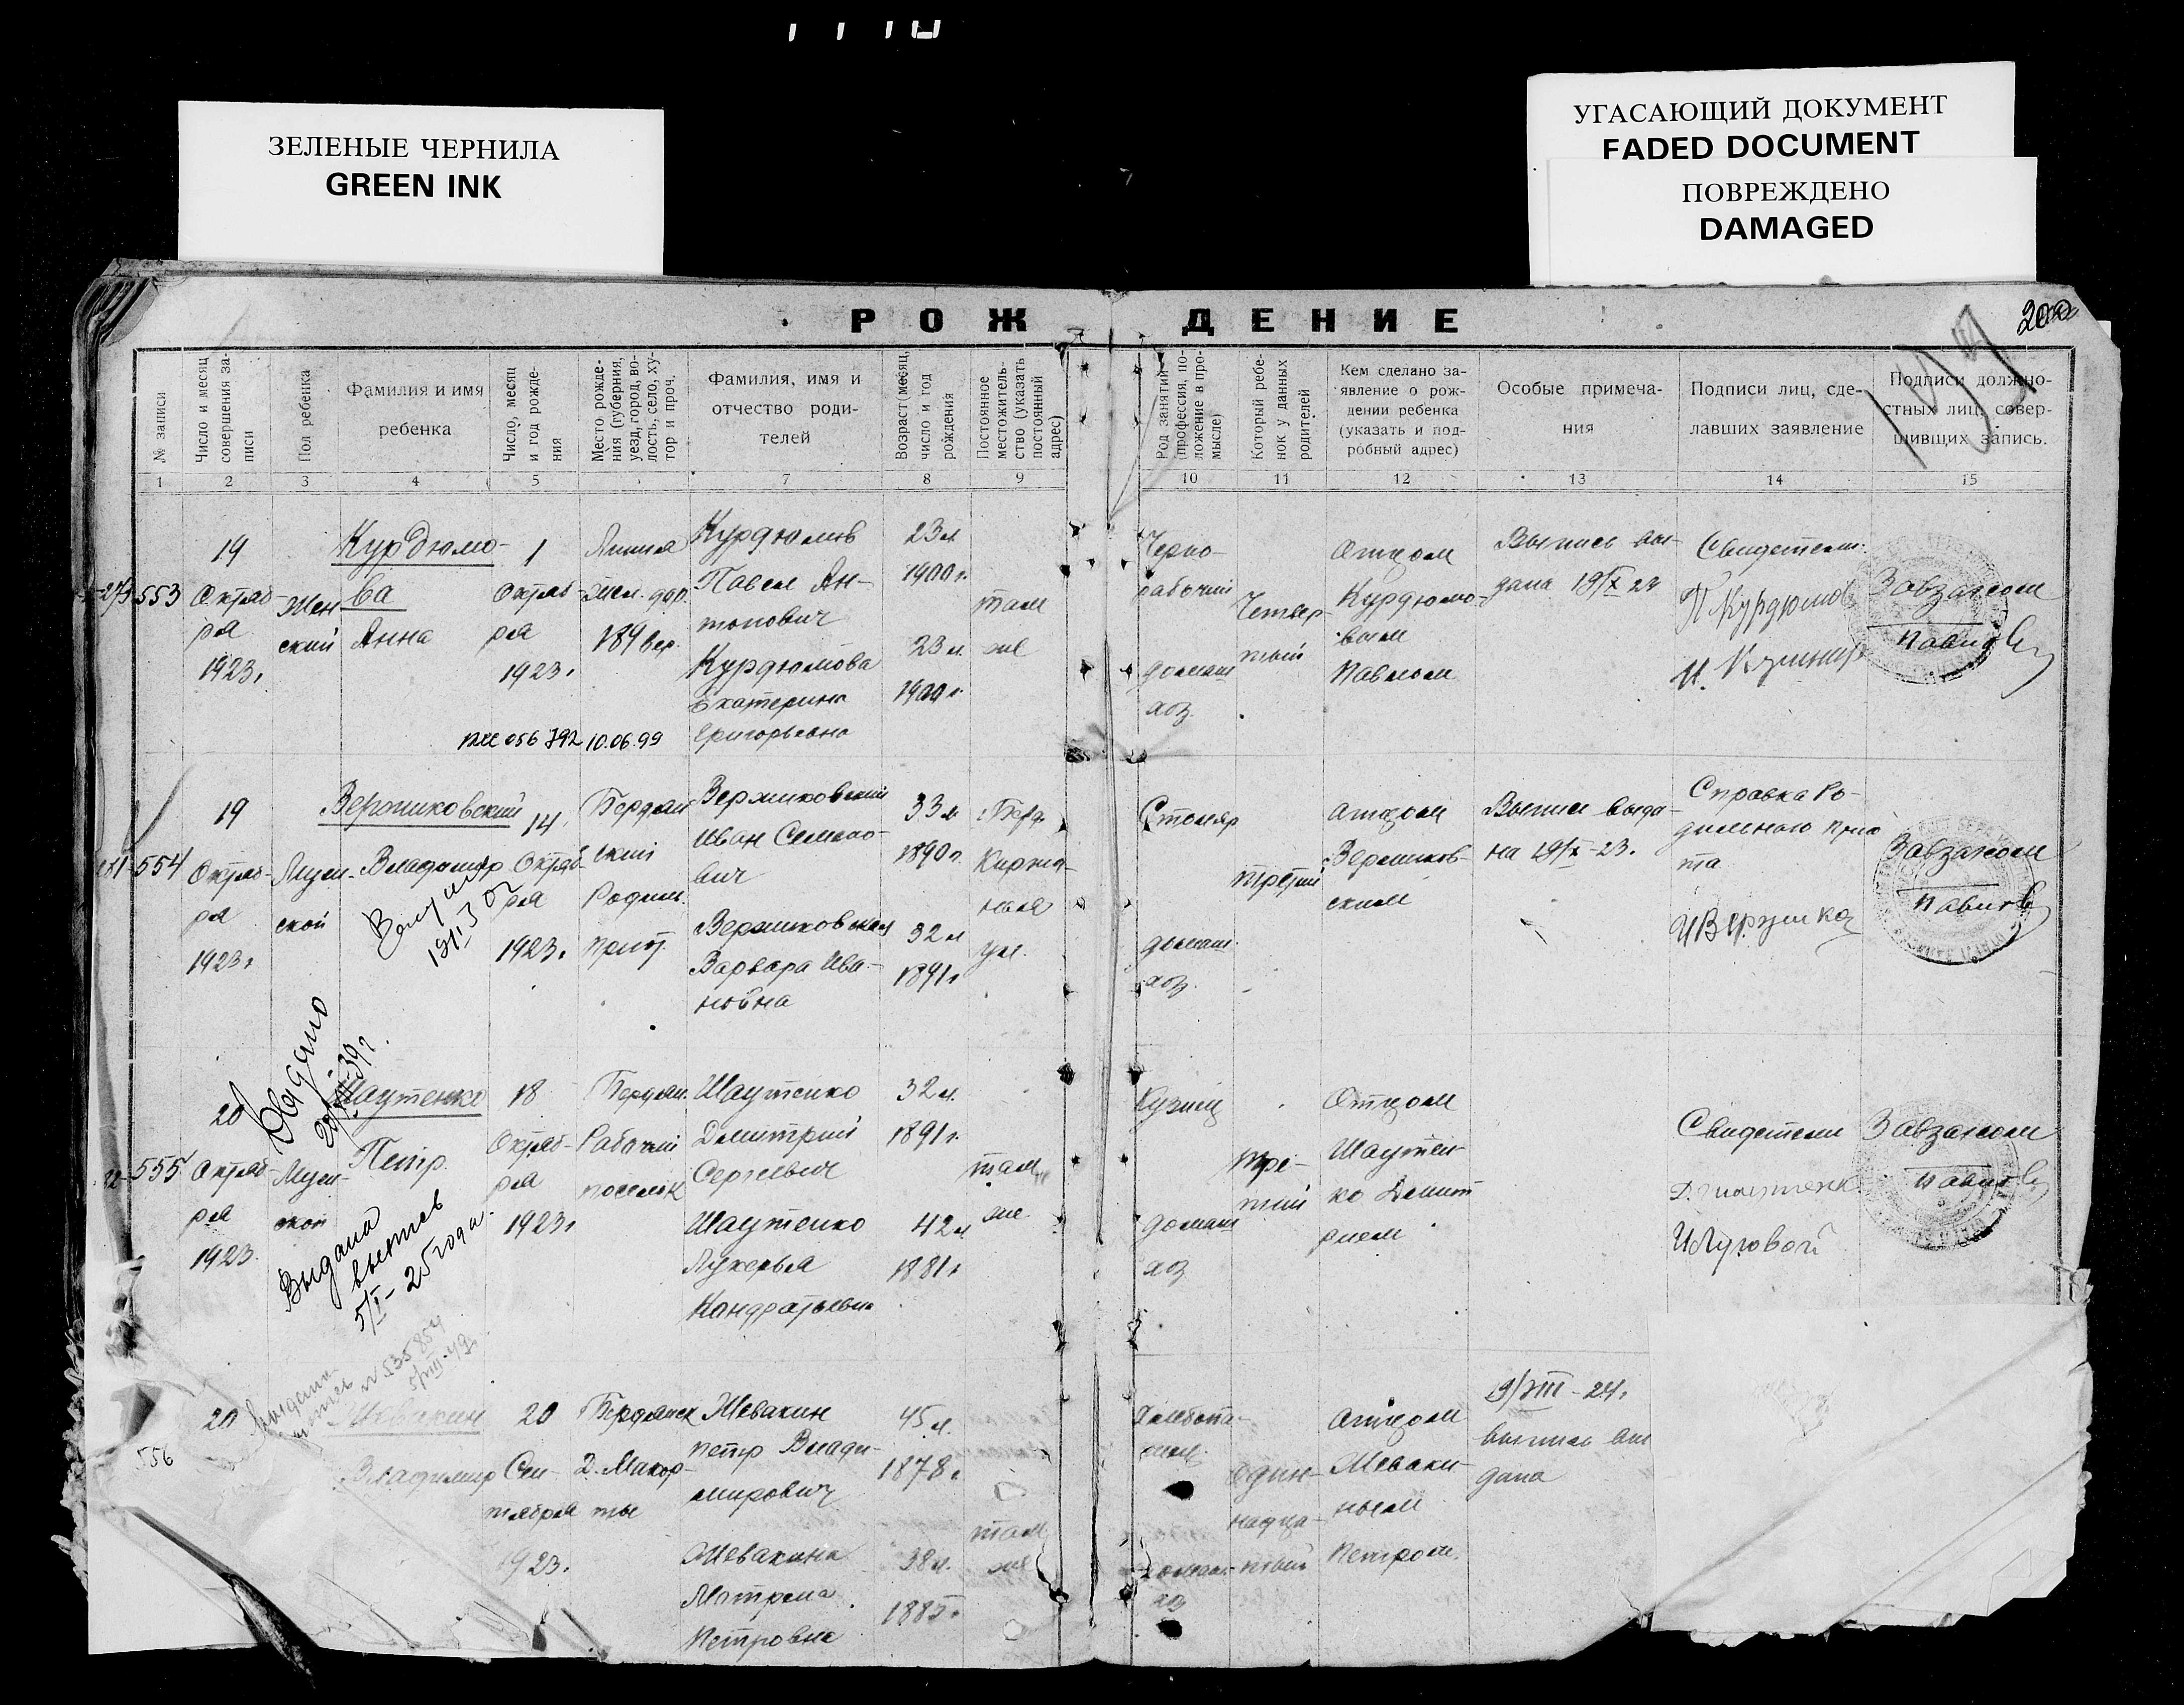 ЗЕЛЕНЫЕ ЧЕРНИЛА
GREEN INK
УГАСАЮЩИЙ ДОКУМЕНТ
FADED DOCUMENT
ПОВРЕЖДЕНО
DAMAGED
РОЖДЕНИЕ
200
199
№ записи
Число и месяц совершения записи
Пол ребенка
Фамилия и имя
ребенка
Число, месяц
и год рожде-
ния
Место рожде-
ния (губерния,
уезд, город, во-
лость, село, ху-
тор и проч.
Фамилия, имя и
отчество роди-
телей
Возраст месяц,
число и год
рождения
Постоянное
местожитель-
ство (указать
постоянный
адрес)
Род занятий
(профессия, по-
ложение в про-
мысле)
Который ребе-
нок у данных
родителей
Кем сделано за-
явление о рож-
дении ребенка
(указать и под-
робный адрес)
Особые примеча-
ния
Подписи лиц, сде-
лавших заявление
Подписи должно-
стных лиц, совер-
шивщих запись.
1 2 3 4 5 7 8 9 10 11 12 13 14 15
553
19
Октяб-
ря
1923г
Жен
ский
Курдюмо-
ва
Анна
1
Октяб-
ря
1923г
Линия
Жел. дор.
189 вер.
Курдюмов
Павел Ан-
тонович
Курдюмова
Екатерина
Григорьевна
23 л.
1900 г.
23 л.
1900 г.
там
же
056792 10.06.99
Черно-
рабочий
домаш
хоз.
Четвер-
тый
Отцом
Курдюмо-
вым
Павлом
Выпись вы-
дана 19/X 23
Свидетели:
П Курдюмов
И. Кушнир
Завзагсом
554
19
Октяб-
ря
1923г
Муж-
ской
Вержиковский
Владимир
14
Октяб-
ря
1923г
Бердян
ский
Родил.
приют
Вержиковский
Иван Семено-
вич
Вержиковская
Варвара Ива-
новна
33 л.
1890 г.
32 л.
1891 г.
Берд.
ул.
Столяр
домаш.
хоз.
третий
Отцом
Вержиков-
ским
Выпись выда-
на 19/X-23.
Справка Ро-
дильного прию
та
Завзагсом
Выдано
555
20
Октяб-
ря
1923.
Муж-
ской
Шаутенко
Петр.
18
Октяб-
ря
1923г
Бердян.
Рабочий
поселок
Шаутенко
Димитрий
Сергеевич
Шаутенко
Лукерья
Кондратьевна
32 л.
1891 г.
42 л
1881 г
там
же
Выдана
выпись
5/I-25 года.
Кузнец
домаш
хоз
тре-
тий
Отцом
Шаутен-
ко Димит
рием
Свидетели
И Луговой
Завзагсом
N 535854
5/VIII-49
556
20
Шевакин
Владимир
20
Сен-
тября
1923.
Бердянск
Шевакин
Петр Влади-
мирович
Шевакина
Матрена
Петровна
45 л.
1878 г.
38 л.
1885 г.
там
же
хоз
один-
надца-
тый
Отцом
Шеваки-
ным
Петром.
19/VIII-24г
выпись вы
дана